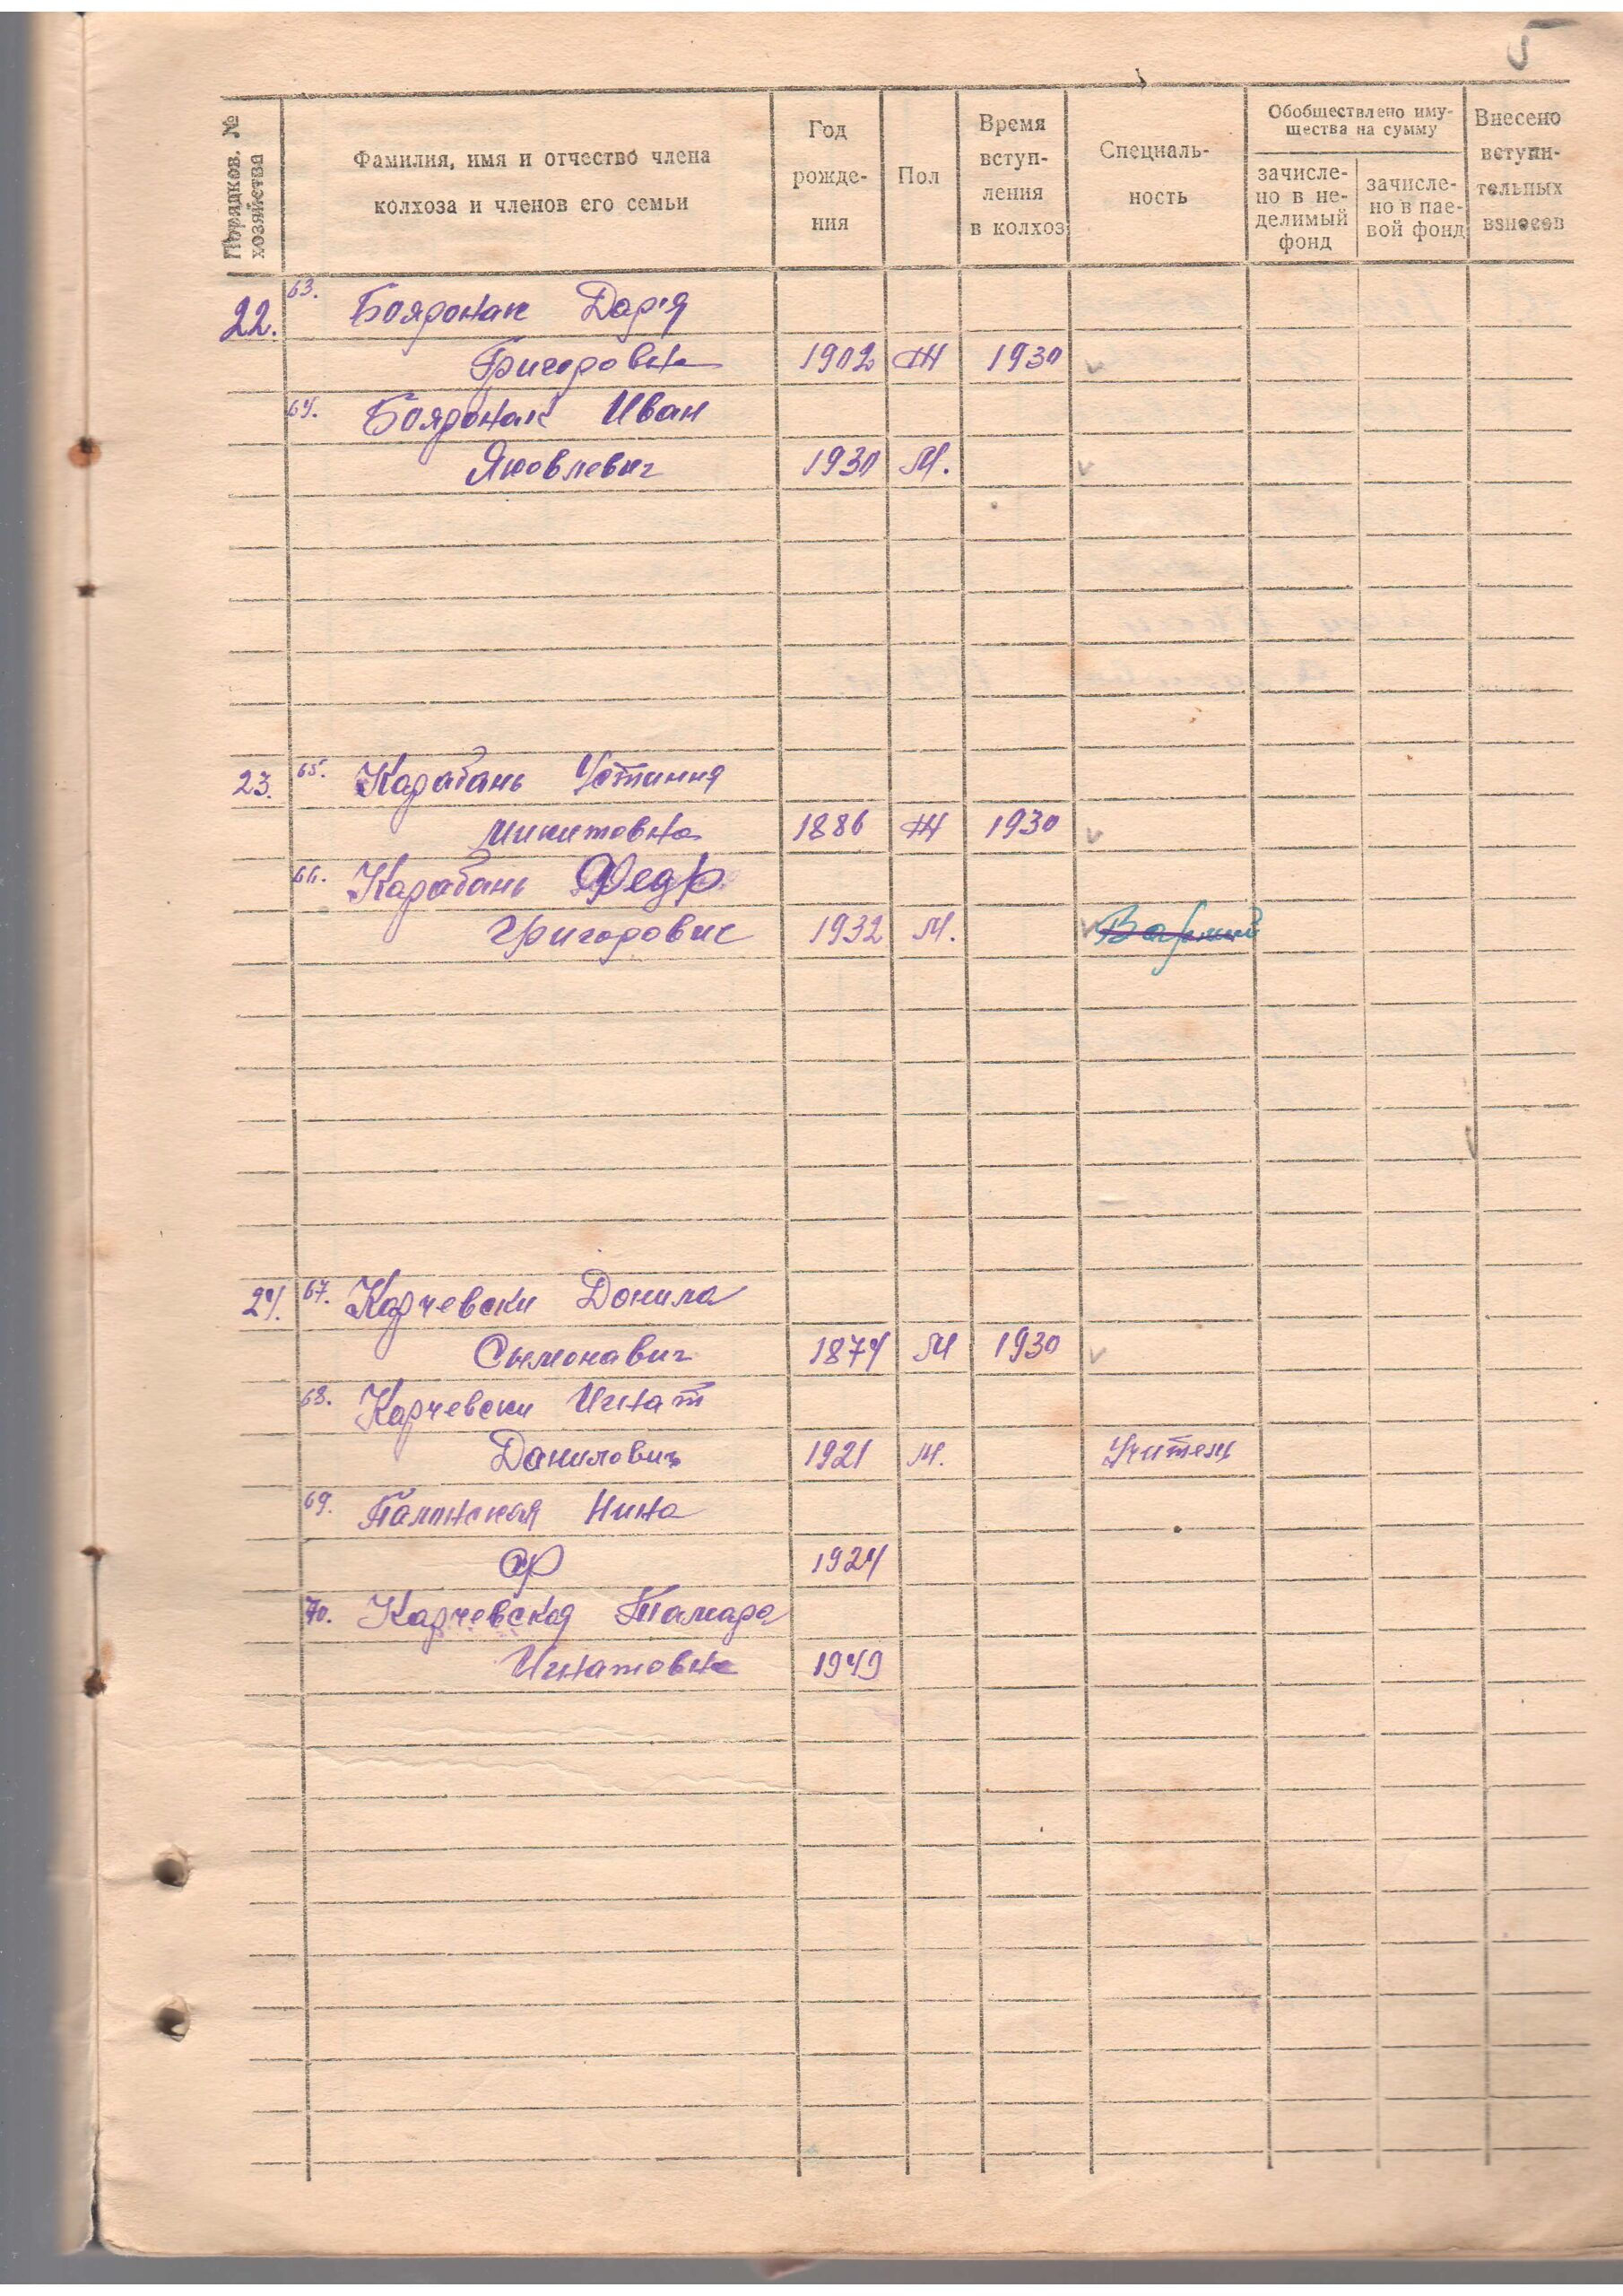 5
Порядков. №
хозяйства
Фамилия, имя и отчество члена
колхоза и членов его семьи
Год
рожде-
ния
Пол
Время
вступ-
ления
в колхоз
Специаль-
ность
Обобществлено иму-
щества на сумму
зачисле-
но в не-
делимый
фонд
зачисле-
но в пае-
вой фонд
Внесено
вступи-
тельных
взносов
22. 63. Бояронак Дар'я
Григоровна 1902 Ж 1930
64. Бояронак Иван
Яковлевич 1930 М.
23. 65. Карабань Устиння
Микитовна 1886 Ж 1930
66. Карабань Федр
Григорович 1932 М.
24. 67. Карчевски Донила
Сымонавич 1874 М 1930
68. Карчевски Игнат
Данилович 1921 М. Учитель
69. Нина
1924
70. Карчевская Тамара
Игнатовна 1949